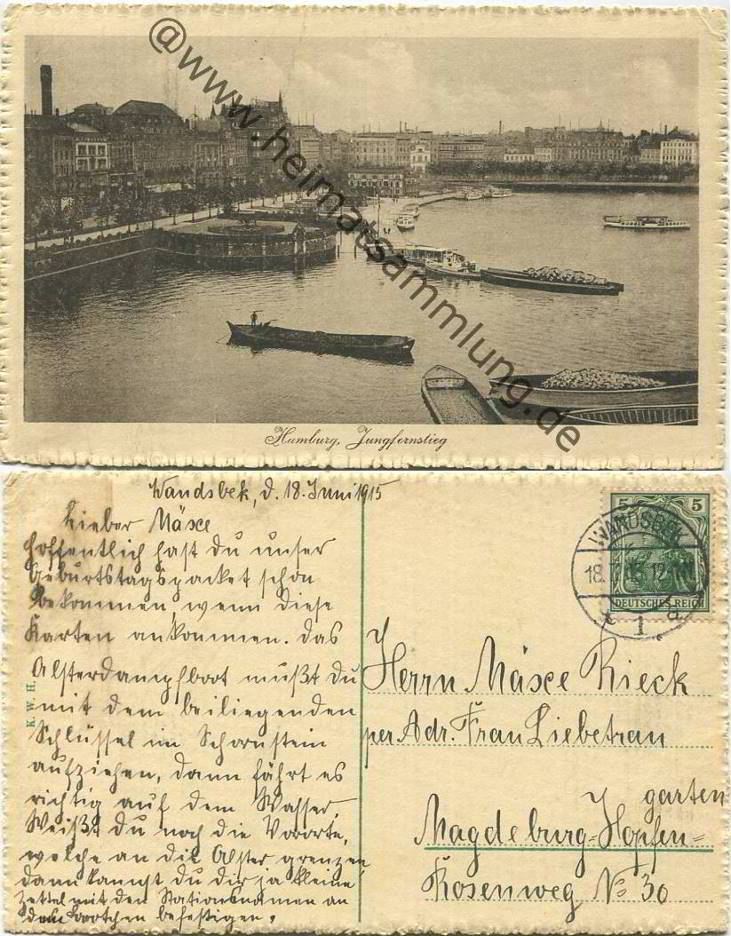 @www.heimatsammlung.de
Hamburg, Jungfernstieg
Wandsbek, d. 18. Juni 1915
Lieber Mäxe
hoffentlich hast du unser
Geburtstagspacket schon
bekommen, wenn diese
Karten ankommen. Das
Alsterdampfboot mußt du
mit dem beiliegenden
Schlüssel im Schornstein
aufziehen, dann fährt es
richtig auf dem Wasser.
Weißt du noch die Vororte,
welche an die Alster grenzen,
dann kannst du dir ja kleine
Zettel mit den Stationsnamen an
dem Bootchen befestigen.
K. W. H.
5 5
WANDSBEK
18. 15. 12
DEUTSCHES REICH
* 1 a
Herrn Mäxe Rieck
per Adr. Frau Liebetrau
Magdeburg-Hopfen=
garten
Rosenweg No 30